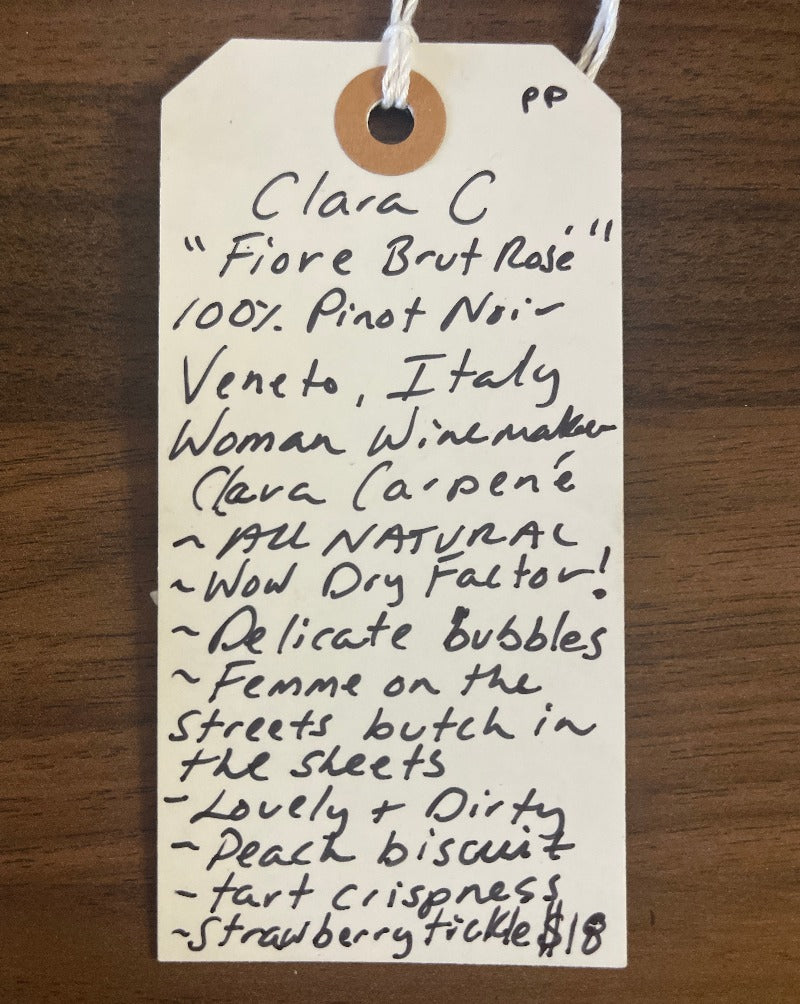 PP
Clara C
"Fiore Brut Rosé"
100% Pinot Noir
Veneto, Italy
Woman Winemaker
Clara Carpené
~ ALL NATURAL
~ Wow Dry Factor!
~ Delicate bubbles
~ Femme on the
streets butch in
the sheets
- Lovely + Dirty
~ Peach biscuit
~ tart crispness
~ Strawberry tickle $18